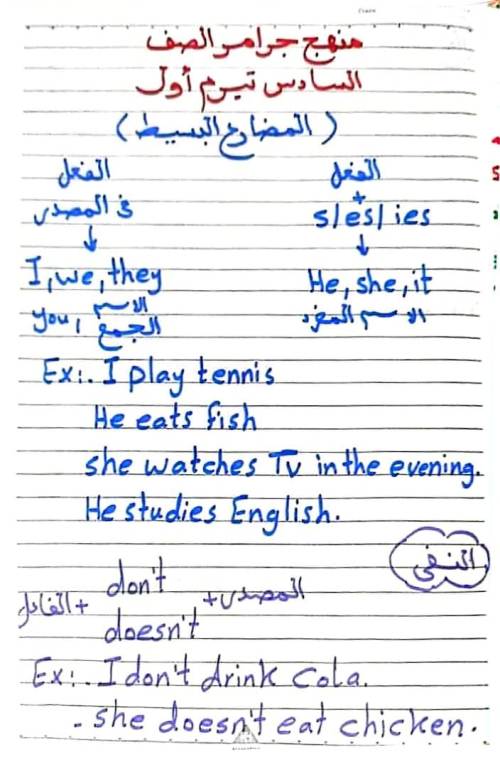 منهج جرامر الصف
السادس تيرم أول
(المضارع البسيط)
الفعل
+
s/es/ies
↓
He, she, it
الاسم المفرد
الفعل
في المصدر
↓
I, we, they
you, الاسم الجمع
Ex:. I play tennis
He eats fish
she watches Tv in the evening.
He studies English.
النفى
الفاعل + don't / doesn't + المصدر
Ex:. I don't drink cola.
- she doesn't eat chicken.